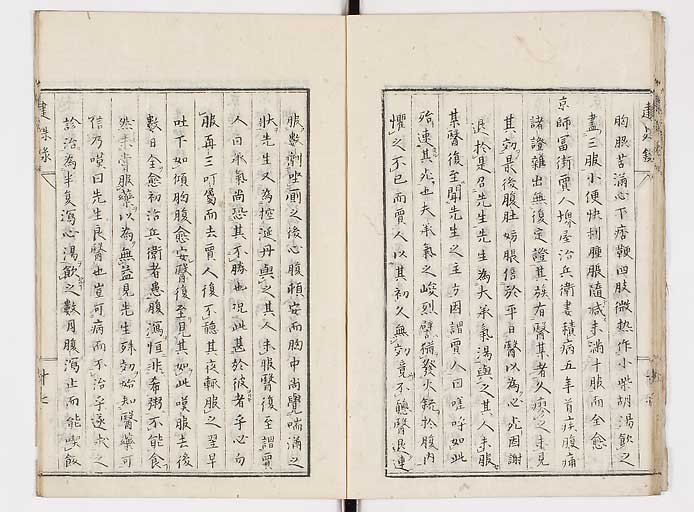 胸脹苦滿心下痞鞕四肢微熱作小柴胡湯飲之
盡三服小便快利腫脹隨減未滿十服而全愈
京師冨街賈人堺屋治兵衛妻積病五年首疾腹痛
諸證雜出無復定證其族有醫某者久療之未見
其効最後腹肚妨脹倍於平日醫以為必死因謝
退於是召先生先生為大承氣湯與之其人未服
某醫復至聞先生之主方因謂賈人曰嗟呼如此
殆速其死也夫承氣之峻烈譬猶發火銃於腹内
懼之不已而賈人以其初久無効竟不聽醫退連
服數劑坐厠之後心腹頓安而胸中尚覺喘滿之
狀先生又為控涎丹與之其人未服醫復至謂賈
人曰承氣尚恐其不勝也况此甚於彼者乎必勿
服再三叮囑而去賈人復不聽其夜輒服之翌早
吐下如傾胸腹愈安醫復至見其如此嘆服去後
數日全愈初治兵衛者患腹瀉恒非希粥不能食
然未嘗服藥以為無益見先生殊効始知醫藥可
信乃嘆曰先生良醫也豈可病而不治乎遂求之
診治為半夏瀉心湯飲之數月腹瀉止而能喫飯
建殊錄
十七